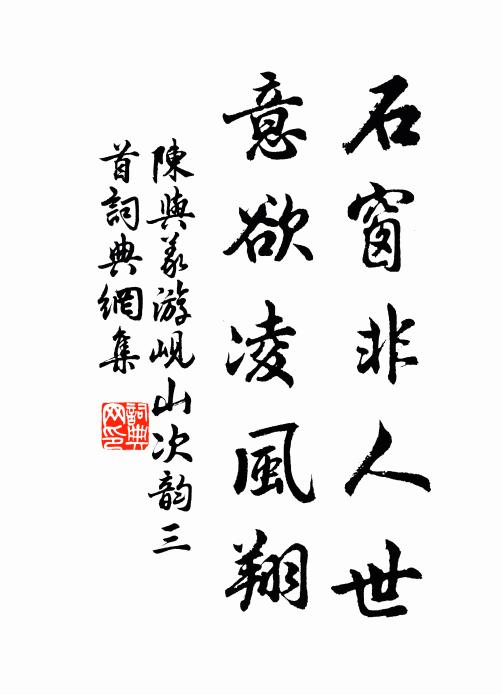 石窗非人世
意欲凌風翔
陳與義游峴山次韵三
首詞典網集
詞典
网印